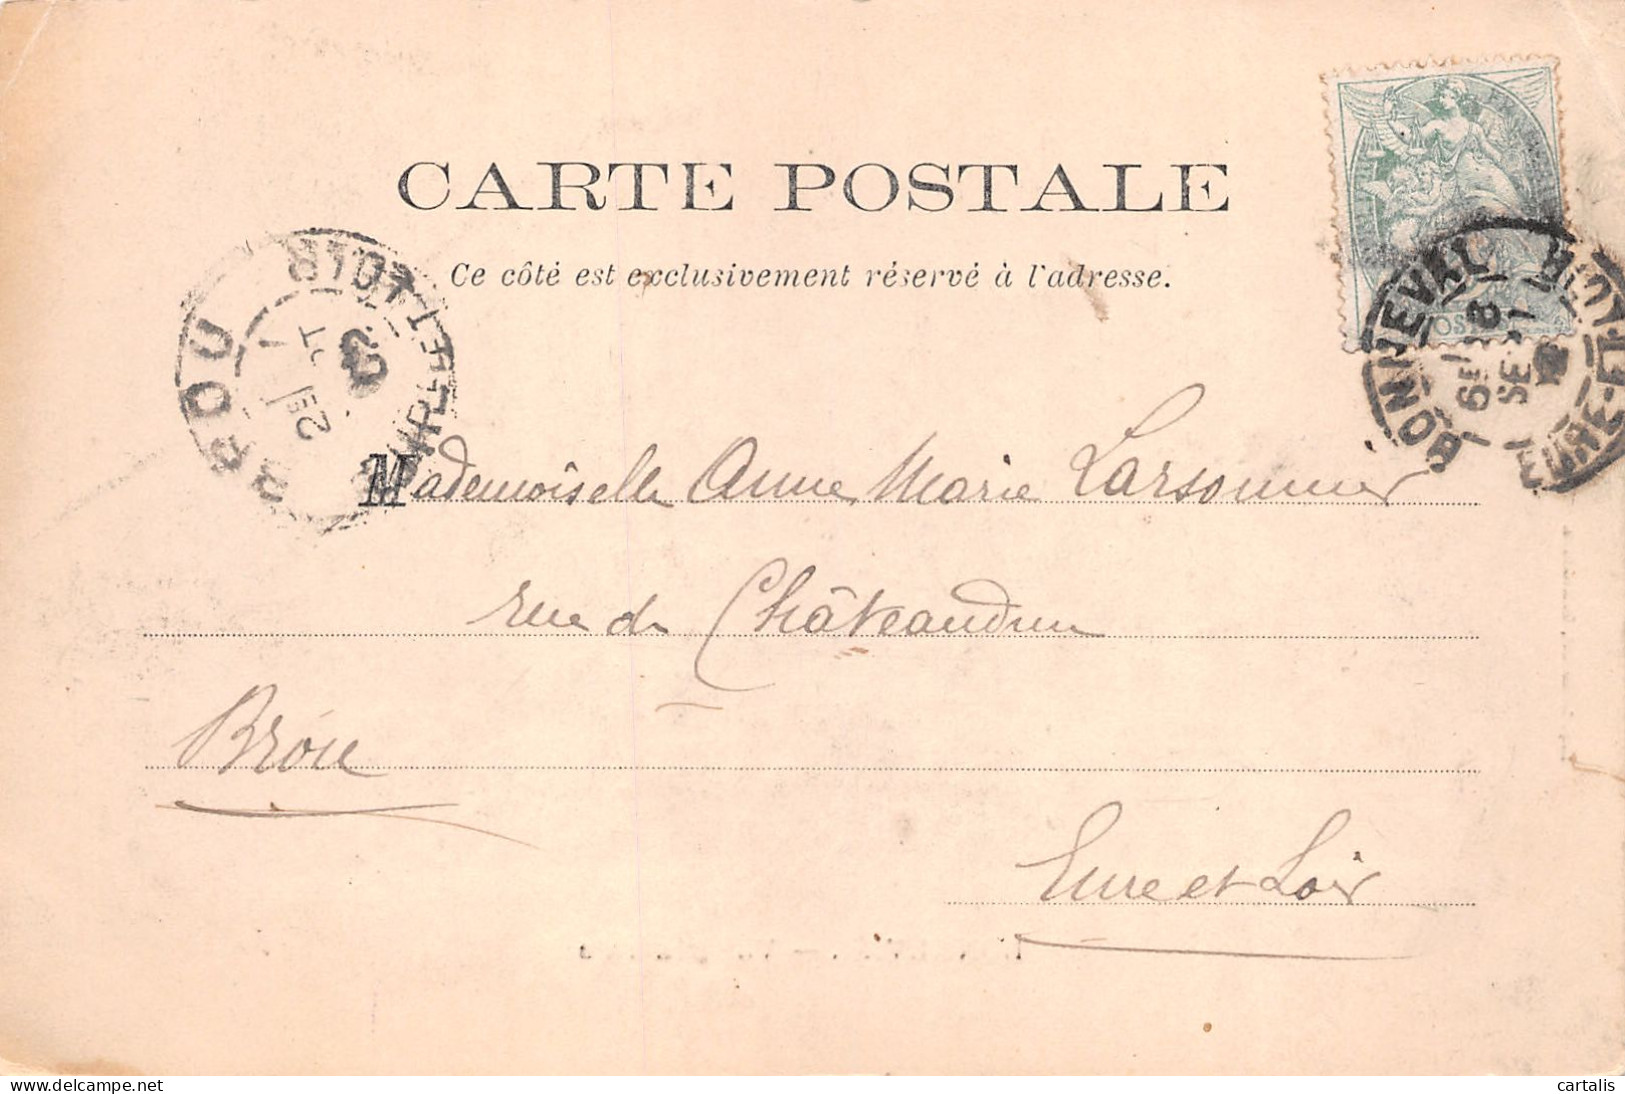 CARTE POSTALE
Ce côté est exclusivement réservé à l'adresse.
BROU
EURE-ET-LOIR
BONNEVAL
EURE-ET-LOIR
Mademoiselle Anne Marie Larsonnier
rue de Châteaudun
Brou
Eure et Loir
cartalis